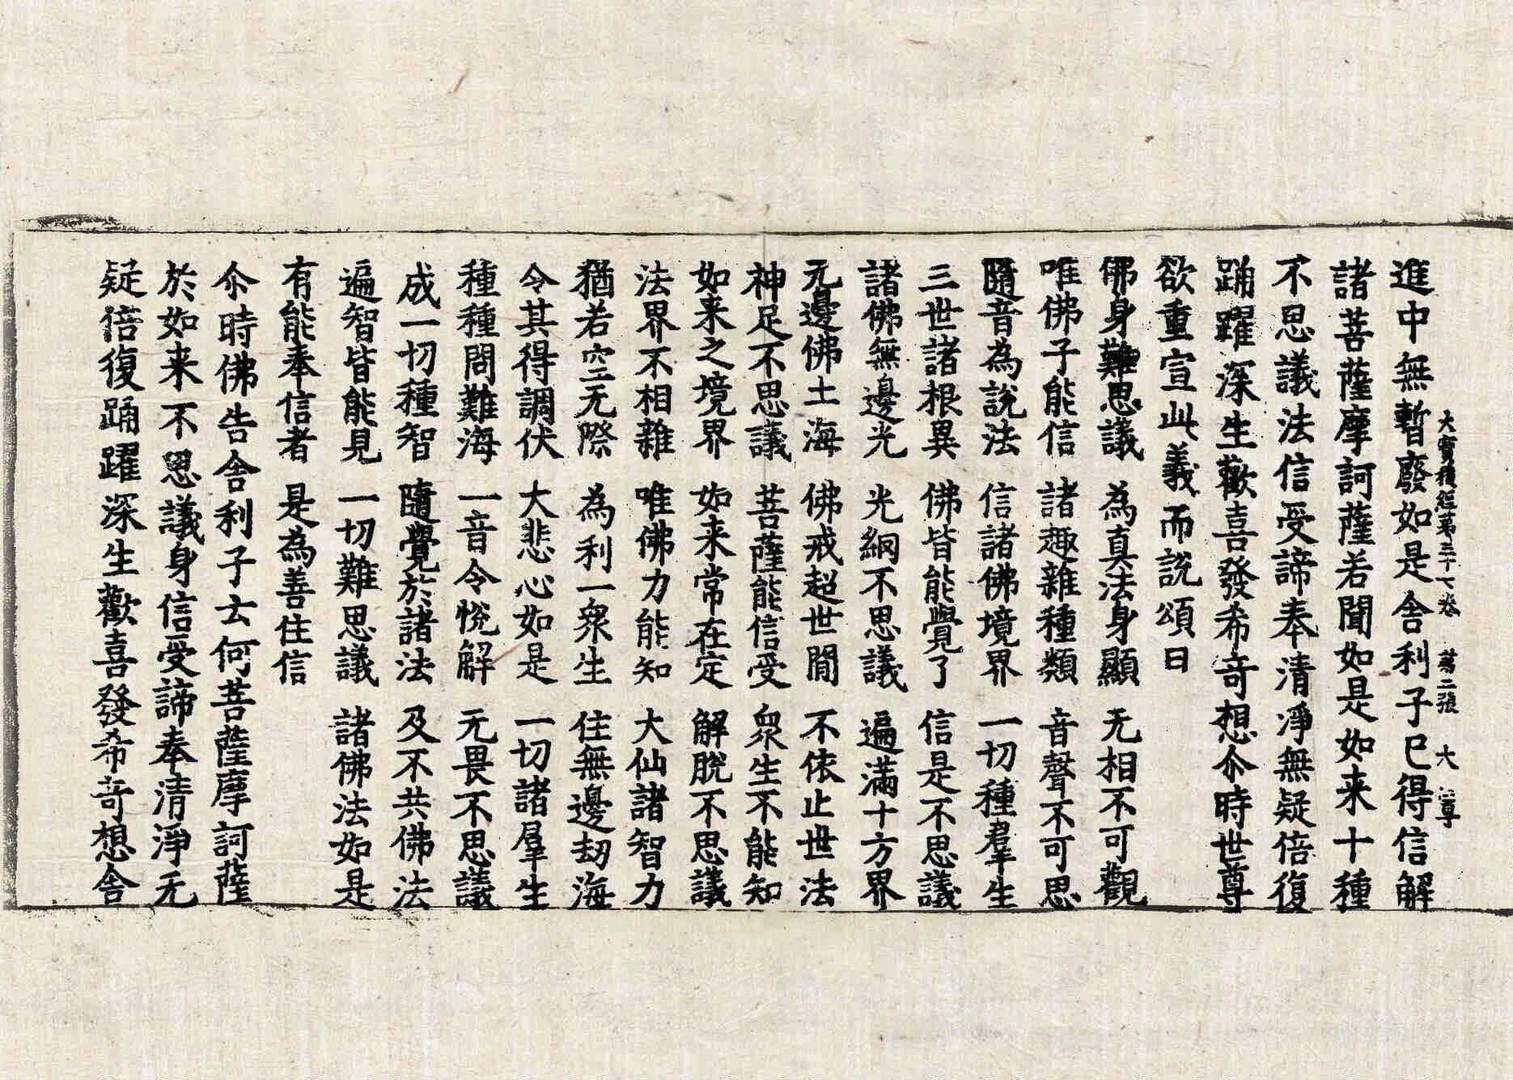 大寶積經第三十七卷　第二張　大　尊
進中無暫廢如是舍利子已得信解
諸菩薩摩訶薩若聞如是如来十種
不思議法信受諦奉清淨無疑倍復
踊躍深生歡喜發希竒想尒時世尊
欲重宣此義而說頌曰
佛身難思議　為真法身顯　无相不可觀
唯佛子能信　諸趣雜種類　音聲不可思
隨音為說法　信諸佛境界　一切種羣生
三世諸根異　佛皆能覺了　信是不思議
諸佛無邊光　光網不思議　遍滿十方界
无邊佛土海　佛戒超世間　不依止世法
神足不思議　菩薩能信受　衆生不能知
如来之境界　如来常在定　解脫不思議
法界不相雜　唯佛力能知　大仙諸智力
猶若空无際　為利一衆生　住無邊劫海
令其得調伏　大悲心如是　一切諸羣生
種種問難海　一音令悅解　无畏不思議
成一切種智　隨覺於諸法　及不共佛法
遍智皆能見　一切難思議　諸佛法如是
有能奉信者　是為善住信
尒時佛告舍利子云何菩薩摩訶薩
於如来不思議身信受諦奉清淨无
疑倍復踊躍深生歡喜發希竒想舍